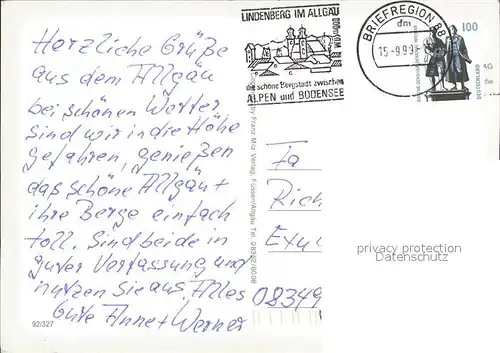 Herzliche Grüße
aus dem Allgäu
bei schönen Wetter
sind wir in die Höhe
gefahren, genießen
das schöne Allgäu +
ihre Berge einfach
toll. Sind beide in
guter Verfassung und
nutzen Sie aus. Alles
Gute Annet Werner
92/327
LINDENBERG IM ALLGÄU
die schöne Bergstadt zwischen
ALPEN und BODENSEE
BRIEFREGION 88
dm
15-9.9
100
DEUTSCHLAND
by Franz Milz Verlag, Füssen/Allgäu Tel. 08362/6008
Fa
Rich
Exu
08349
privacy protection
Datenschutz